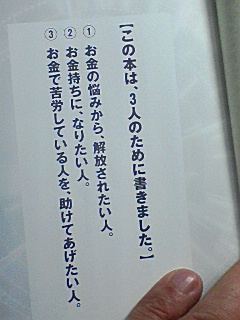 【この本は、3人のために書きました。】
① お金の悩みから、解放されたい人。
② お金持ちに、なりたい人。
③ お金で苦労している人を、助けてあげたい人。